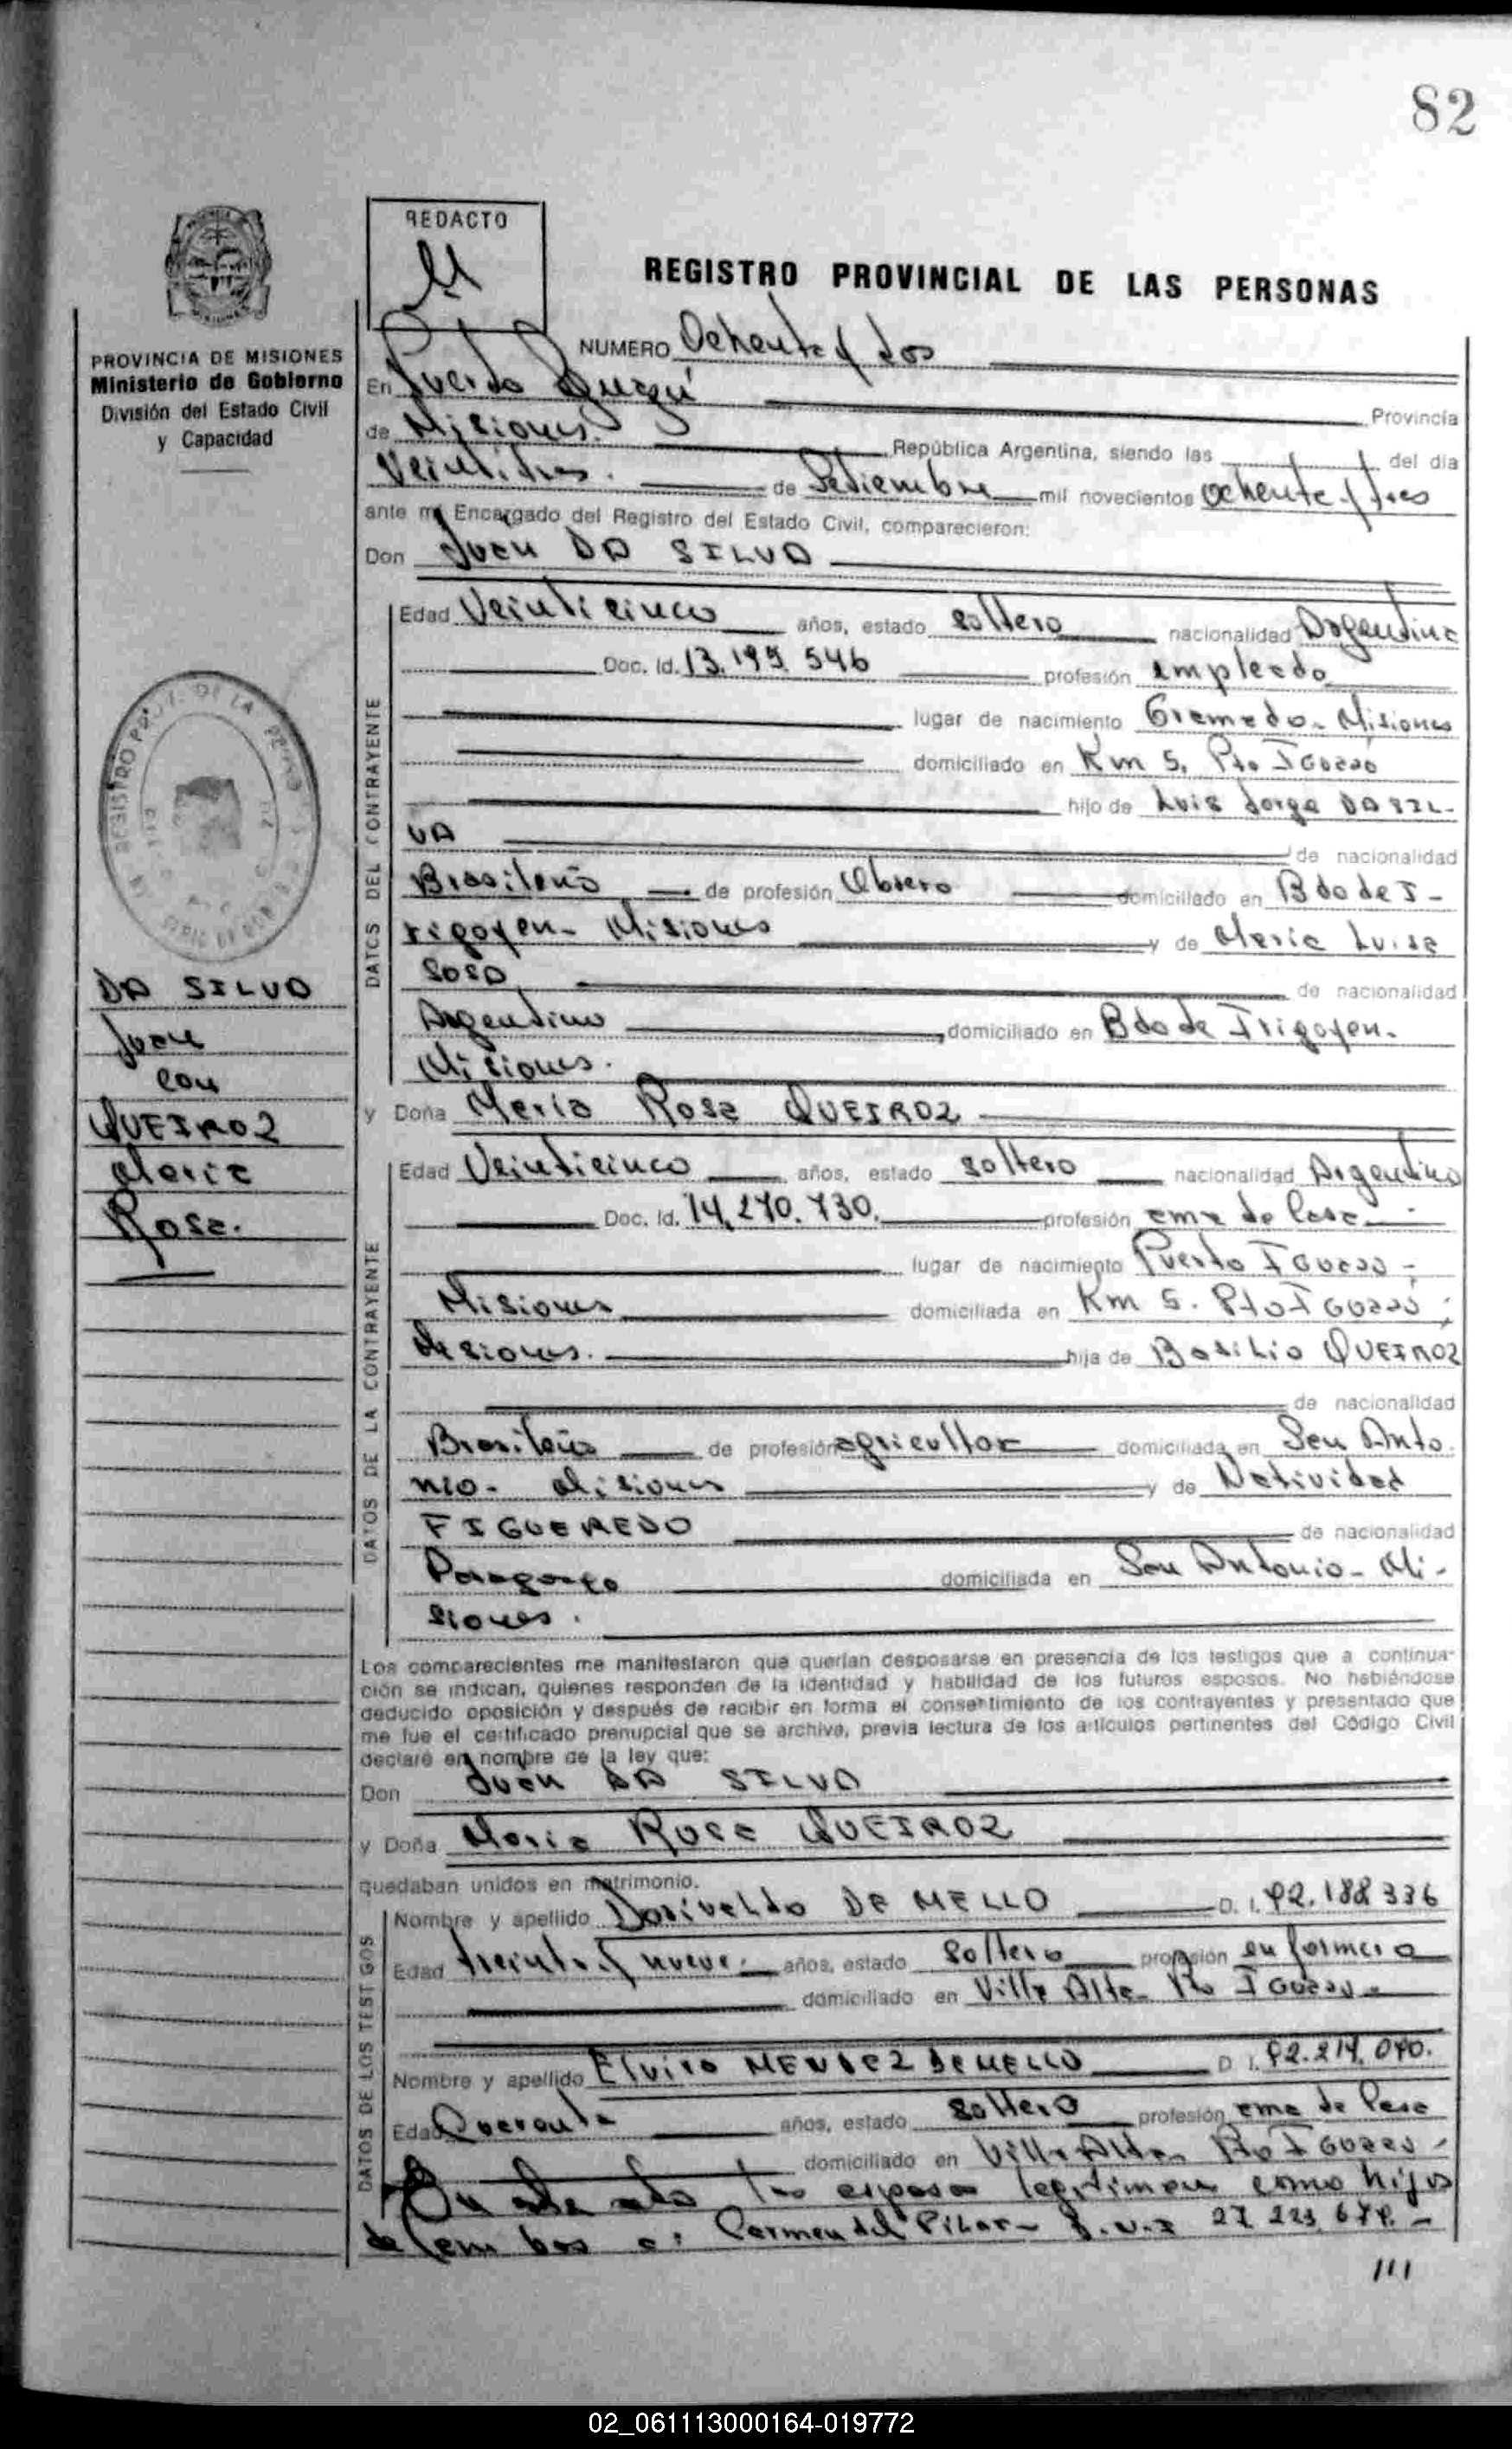 82
REDACTO
REGISTRO PROVINCIAL DE LAS PERSONAS
PROVINCIA DE MISIONES
Ministerio de Gobierno
División del Estado Civil
y Capacidad
NUMERO Ochenta y dos
En Puerto Iguazú Provincia
de Misiones. República Argentina, siendo las del día
Veintitres. de Setiembre mil novecientos ochenta y tres
ante mí Encargado del Registro del Estado Civil, comparecieron:
Don Juan DA SILVA
DATOS DEL CONTRAYENTE
Edad Veinticinco años, estado soltero nacionalidad Argentina
Doc. Id. 13.195.546 profesión empleado
lugar de nacimiento Gramado - Misiones
domiciliado en Km 5, Pto IGUAZU
hijo de Luis Jorge DA SIL-
VA de nacionalidad
Brasileño de profesión Obrero domiciliado en Bdo de I-
rigoyen - Misiones y de María Luisa
SOSA de nacionalidad
Argentina domiciliado en Bdo de Irigoyen.
Misiones.
y Doña María Rosa QUEIROZ
DATOS DE LA CONTRAYENTE
Edad Veinticinco años, estado soltera nacionalidad Argentina
Doc. Id. 14.270.730. profesión ama de casa
lugar de nacimiento Puerto IGUAZU -
Misiones domiciliada en Km 5. Pto IGUAZU;
Misiones. hija de Basilio QUEIROZ
de nacionalidad
Brasileño de profesión agricultor domiciliada en San Anto
nio - Misiones y de Natividad
FIGUEREDO de nacionalidad
Paraguaya domiciliada en San Antonio - Mi-
siones.
Los comparecientes me manifestaron que querían desposarse en presencia de los testigos que a continua-
ción se indican, quienes responden de la identidad y habilidad de los futuros esposos. No habiéndose
deducido oposición y después de recibir en forma el consentimiento de los contrayentes y presentado que
me fue el certificado prenupcial que se archiva, previa lectura de los artículos pertinentes del Código Civil
declaré en nombre de la ley que:
Don Juan DA SILVA
y Doña María Rosa QUEIROZ
quedaban unidos en matrimonio.
DATOS DE LOS TESTIGOS
Nombre y apellido Dorivaldo DE MELLO D. I. 92.188.336
Edad treinta y nueve. años, estado Soltero profesión enfermero
domiciliado en Villa Alta - Pto IGUAZU -
Nombre y apellido Elvira MENDEZ DE MELLO D. I. 92.214.040.
Edad Cuarenta años, estado soltera profesión ama de casa
domiciliado en Villa Alta Pto IGUAZU -
En este acto los esposos legitiman como hijos
de ambos a: Carmen del Pilar - 27.223.679. -
///
DA SILVA
Juan
con
QUEIROZ
María
Rosa.
02_061113000164-019772